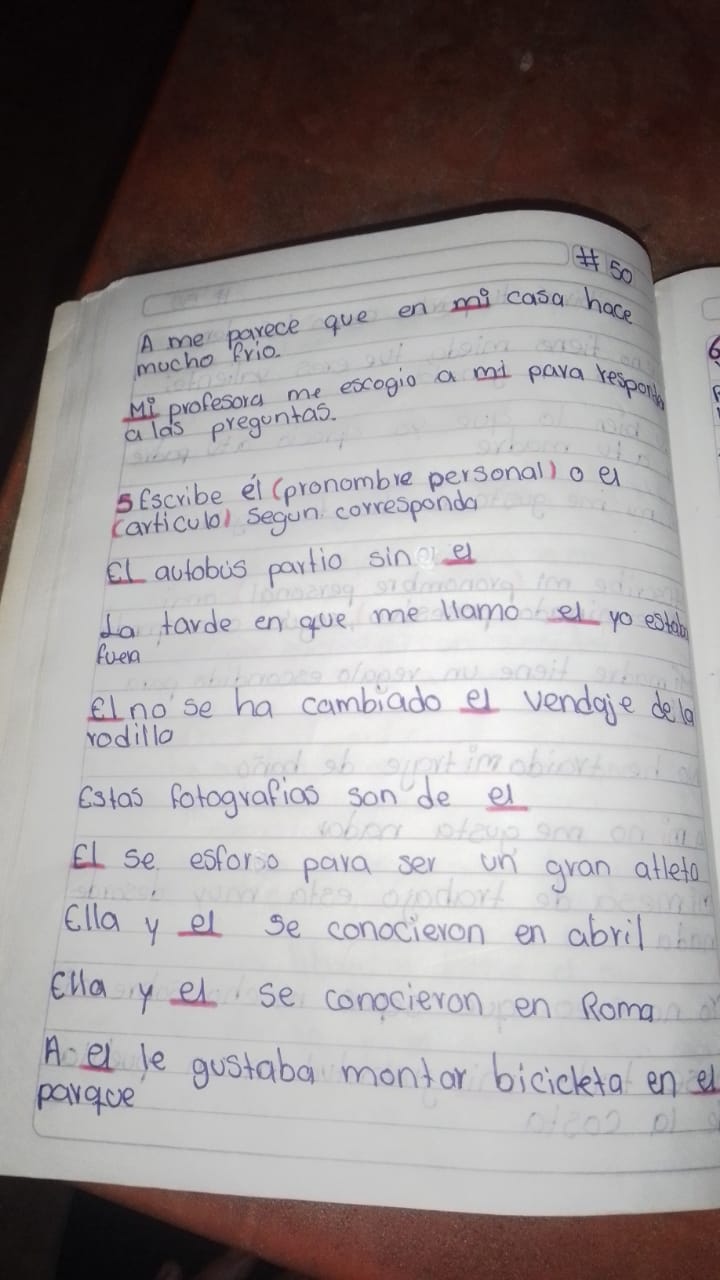 # 50
A me parece que en mi casa hace
mucho frio.
Mi profesora me escogio a mi para responder
a las preguntas.
5 Escribe él (pronombre personal) o el
(articulo) segun corresponda
El autobús partio sin el
La tarde en que me llamo el yo estaba
fuera
El no se ha cambiado el vendaje de la
rodilla
Estas fotografias son de el
El se esforso para ser un gran atleta
Ella y el se conocieron en abril
Ella y el se conocieron en Roma
A el le gustaba montar bicicleta en el
parque
6